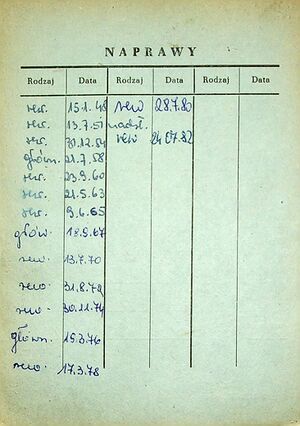 NAPRAWY
Rodzaj Data Rodzaj Data Rodzaj Data
rew. 15.1.48 rew 28.7.80
rew. 13.7.51 nadzł.
rew. 30.12.54 rew 24.07.82
główn. 21.7.58
rew. 23.9.60
rew. 21.5.63
rew. 9.6.65
główn. 18.9.67
rewo 13.7.70
rewo 31.8.72
rewo 30.11.74
główn. 15.3.76
rewo 17.3.78